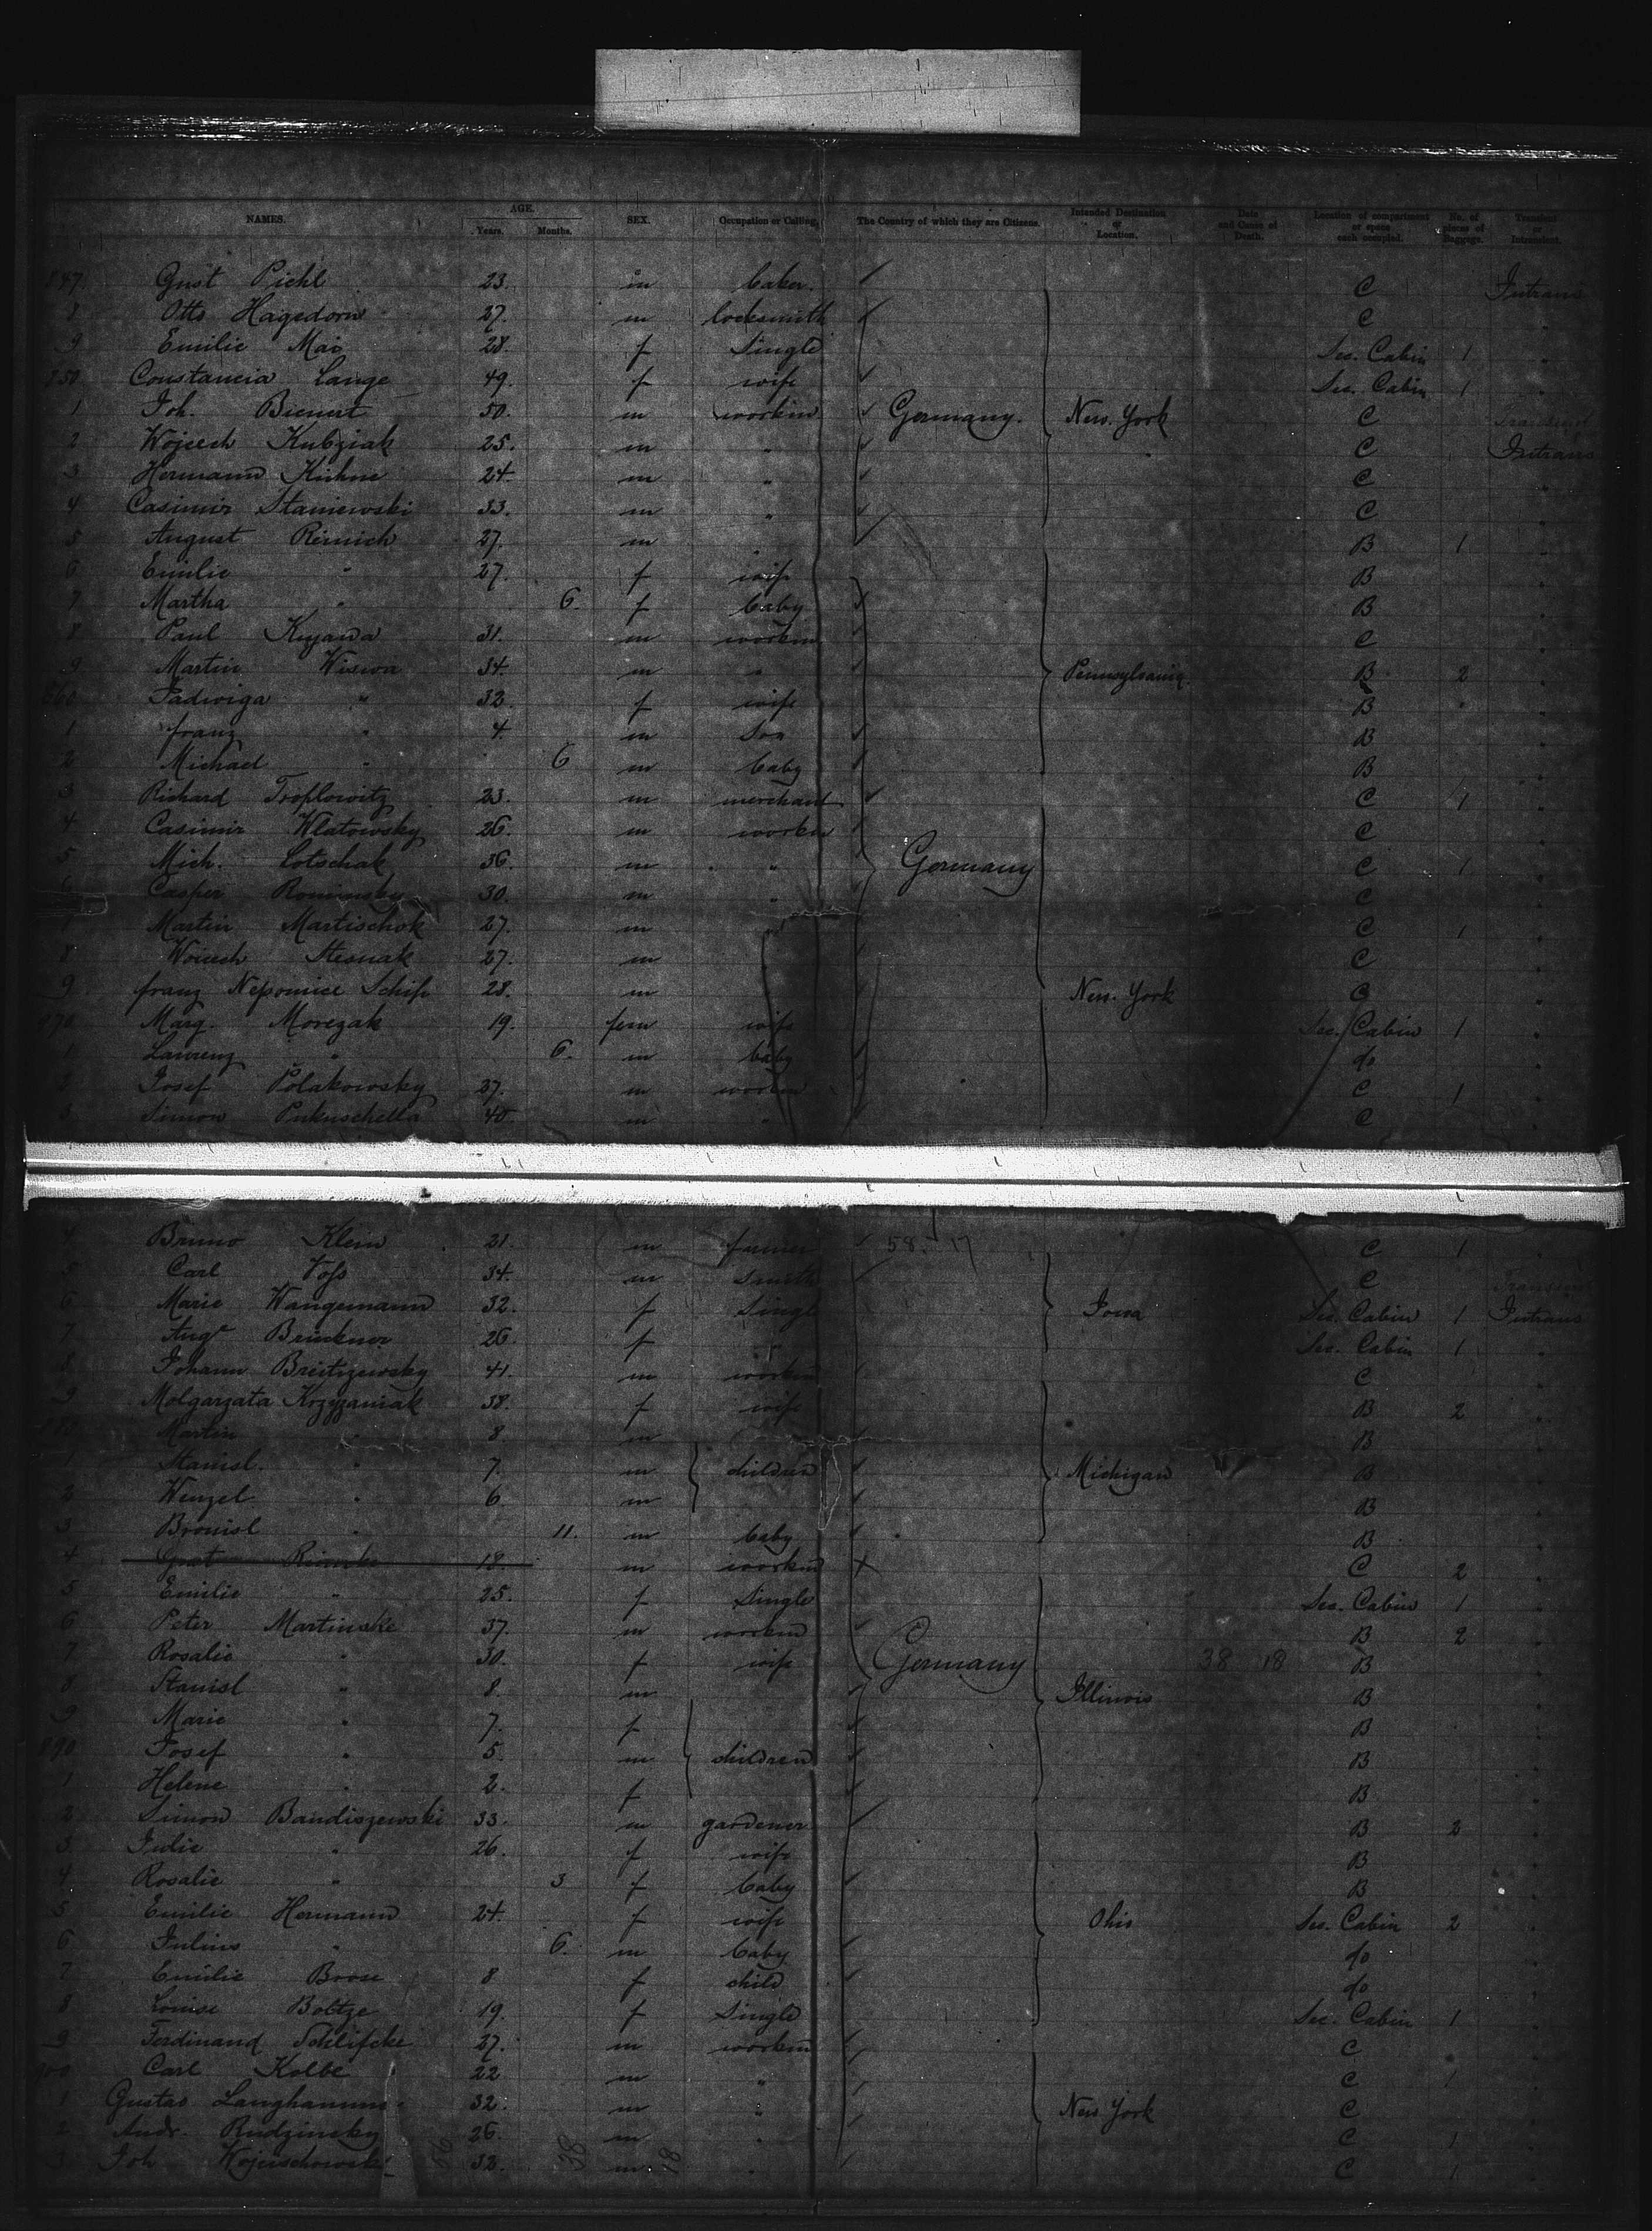 NAMES. AGE. Years. Months. SEX. Occupation or Calling. The Country of which they are Citizens. Intended Destination or Location. Date and Cause of Death. Location of compartment or space each occupied. No. of pieces of Baggage. Transient or Intransient.
847. Gust Piehl 23. m baker. C Intrans
8 Otto Hagedorn 27. m locksmith C "
9 Emilie Mai 28. f Single Sec. Cabin 1 "
850 Constancia Lange 49. f wife Sec. Cabin 1 "
1 Joh. Bienert 50. m workm Germany. New. York C
2 Wojcech Kubziak 25. m " C Intrans
3 Hermann Kühne 24. m " C "
4 Casimir Staniewski 33. m " C "
5 August 27. m B 1 "
6 Emilie " 27. f wife B "
7 Martha " 6. f baby B "
8 Paul Kujawa 31. m workm C "
9 Martin Wiswa 34. m " Pennsylvania B 2 "
860 Jadwiga " 32 f wife B "
1 franz " 4. m Son B "
2 Michael " 6 m baby B "
3 Richard Troplowitz 23. m merchant C 1 "
4 Casimir Wlatowsky 26. m workm C "
5 Mich. Lotschak 36. m " Germany C 1 "
6 Casper Rominsky 30. m " C "
7 Martin Martischok 27. m " C 1 "
8 Woicech Stesnak 27. m C "
9 franz Nepomice Schip 28. m New. York C "
870 Marg. Morezak 19. fem wife Sec. Cabin 1 "
1 Laurenz " 6. m baby do "
2 Josef Polakowsky 37. m workm C 1 "
3 Simon Pukuschella 40. m " C "
4 Bruno Klein 21. m farmer 58. 17 C 1 "
5 Carl Voss 34. m Smith C
6 Marie Wangemann 32. f Single Iowa Sec. Cabin 1 Intrans
7 Augte Brinkner 26. f Sec. Cabin 1 "
8 Johann 41. m workm C "
9 Molgarzata Krzyzaniak 38. f wife B 2 "
880 Martin " 8. m B "
1 Stanisl. " 7. m children Michigan B "
2 Wenzel " 6. m B "
3 Bronisl " 11. m baby B "
4 18. m workm C 2 "
5 Emilie " 25. f Single Sec. Cabin 1 "
6 Peter Martinske 37. m workm B 2 "
7 Rosalie " 30. f wife Germany 38 18 B "
8 Stanisl " 8. m Illinois B "
9 Marie " 7. f B "
890 Josef " 5. m children B "
1 Helene " 2. f B "
2 Simon Bandiszewski 33. m gardener B 2 "
3 Julie " 26. f wife B "
4 Rosalie " 3 f baby B "
5 Emilie Hermann 24. f wife Ohio Sec. Cabin 2 "
6 Julius " 6. m baby do "
7 Emilie Boose 8 f child do "
8 Louise Boltze 19. f Single Sec. Cabin 1 "
9 Ferdinand Schlifcke 27. m workm C "
900 Carl Kolbe 22 m " C 1 "
1 Gustav Langhamms 32. m " New York C "
2 Andr. Rudzinsky 26. m " C 1 "
3 Joh 32. m " C 1 "
38 18